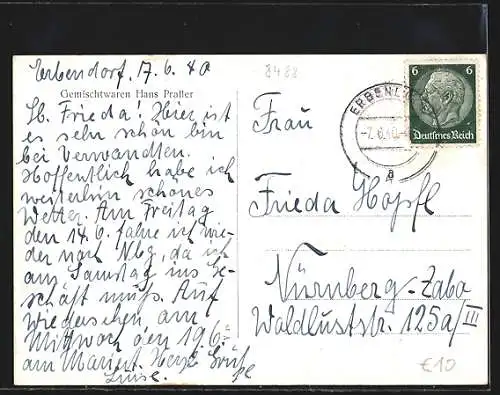 Erbendorf, 17.6.40
8488
Gemischtwaren Hans Praller
Lb. Frieda! Hier ist
es sehr schön bin
bei Verwandten.
Hoffentlich habe ich
weiterhin schönes
Wetter. Am Freitag
den 14.6. fahre ich wie-
der nach Nbg, da ich
am Samstag ins Ge-
schäft muß. Auf
Wiedersehen am
Mittwoch den 19.6.
am Herzl. Grüße
Luise.
ERBEND
-7.6.40.-
a
6 6
Deutsches Reich
Frau
Frieda Hopfl
Nürnberg-Zabo
Waldluststr. 125a/III
€10